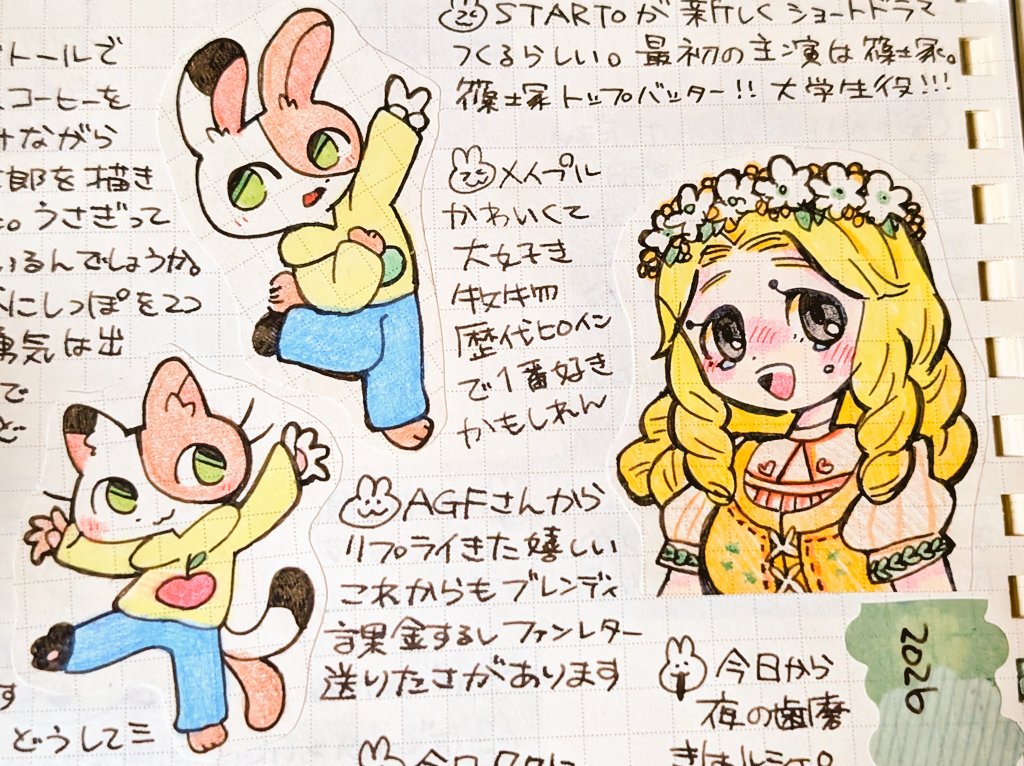 トールで
コーヒーを
ながら
郎を描き
。うさぎって
いるんでしょうか。
にしっぽを2つ
勇気は出
で
ど
す
どうして三
STARTOが新しくショートドラマ
つくるらしい。最初の主演は篠塚。
篠塚トップバッター!!大学生役!!!
メイプル
かわいくて
大好き
牧物
歴代ヒロイン
で1番好き
かもしれん
AGFさんから
リプライきた嬉しい
これからもブレンディ
課金するしファンレター
送りたさがあります
今日から
夜の歯磨
きは
2026